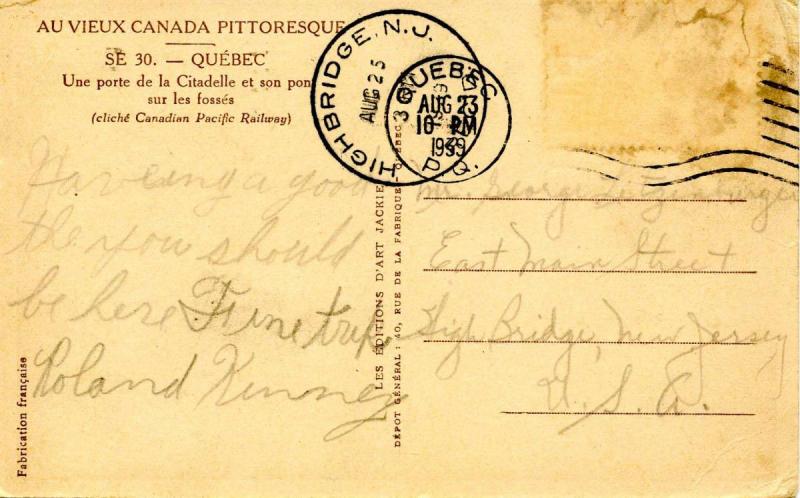 AU VIEUX CANADA PITTORESQUE
SE 30. — QUÉBEC
Une porte de la Citadelle et son pon
sur les fossés
(cliché Canadian Pacific Railway)
HIGHBRIDGE, N.J.
AUG 25
QUEBEC
AUG 23
10- PM
1939
P.Q.
Having a good
the you should
be here Fine trip
Roland Kinney
Fabrication française
LES ÉDITIONS D'ART JACKIE
DÉPOT GÉNÉRAL : 40, RUE DE LA FABRIQUE - QUÉBEC
Mr. George
East Main Street
High Bridge, New Jersey
U.S.A.